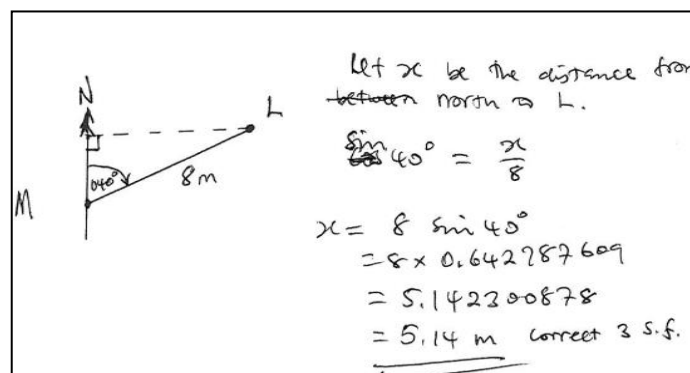 N
L
040°
8m
M
Let x be the distance from
between north to L.
sin
cos 40° = x/8
x = 8 sin 40°
= 8 × 0.642787609
= 5.142300878
= 5.14 m correct 3 s.f.